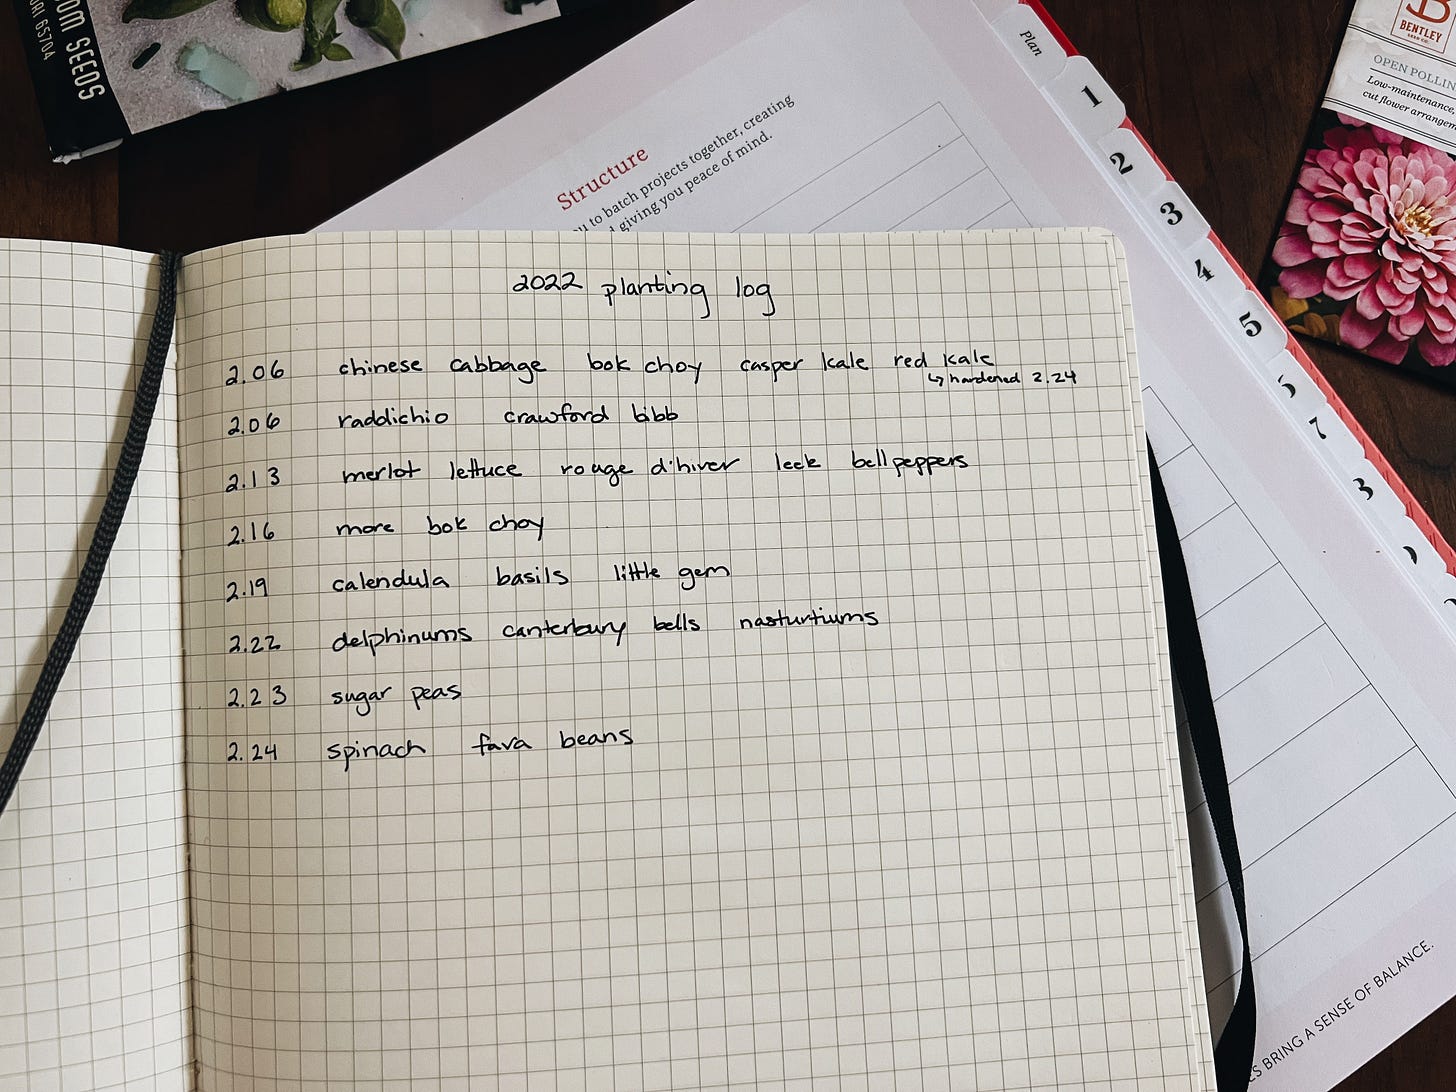 OM SEEDS
ORI 65704
Plan
1
2
3
4
5
7
3
Structure
to batch projects together, creating
giving you peace of mind.
BENTLEY
SEED CO.
OPEN POLLIN
Low-maintenance,
cut flower arrangem
2022 planting log
2.06 chinese cabbage bok choy casper kale red kale
↳ hardened 2.24
2.06 raddichio crawford bibb
2.13 merlot lettuce rouge d'hiver leek bell peppers
2.16 more bok choy
2.19 calendula basils little gem
2.22 delphinums canterbury bells nasturtiums
2.23 sugar peas
2.24 spinach fava beans
ES BRING A SENSE OF BALANCE.